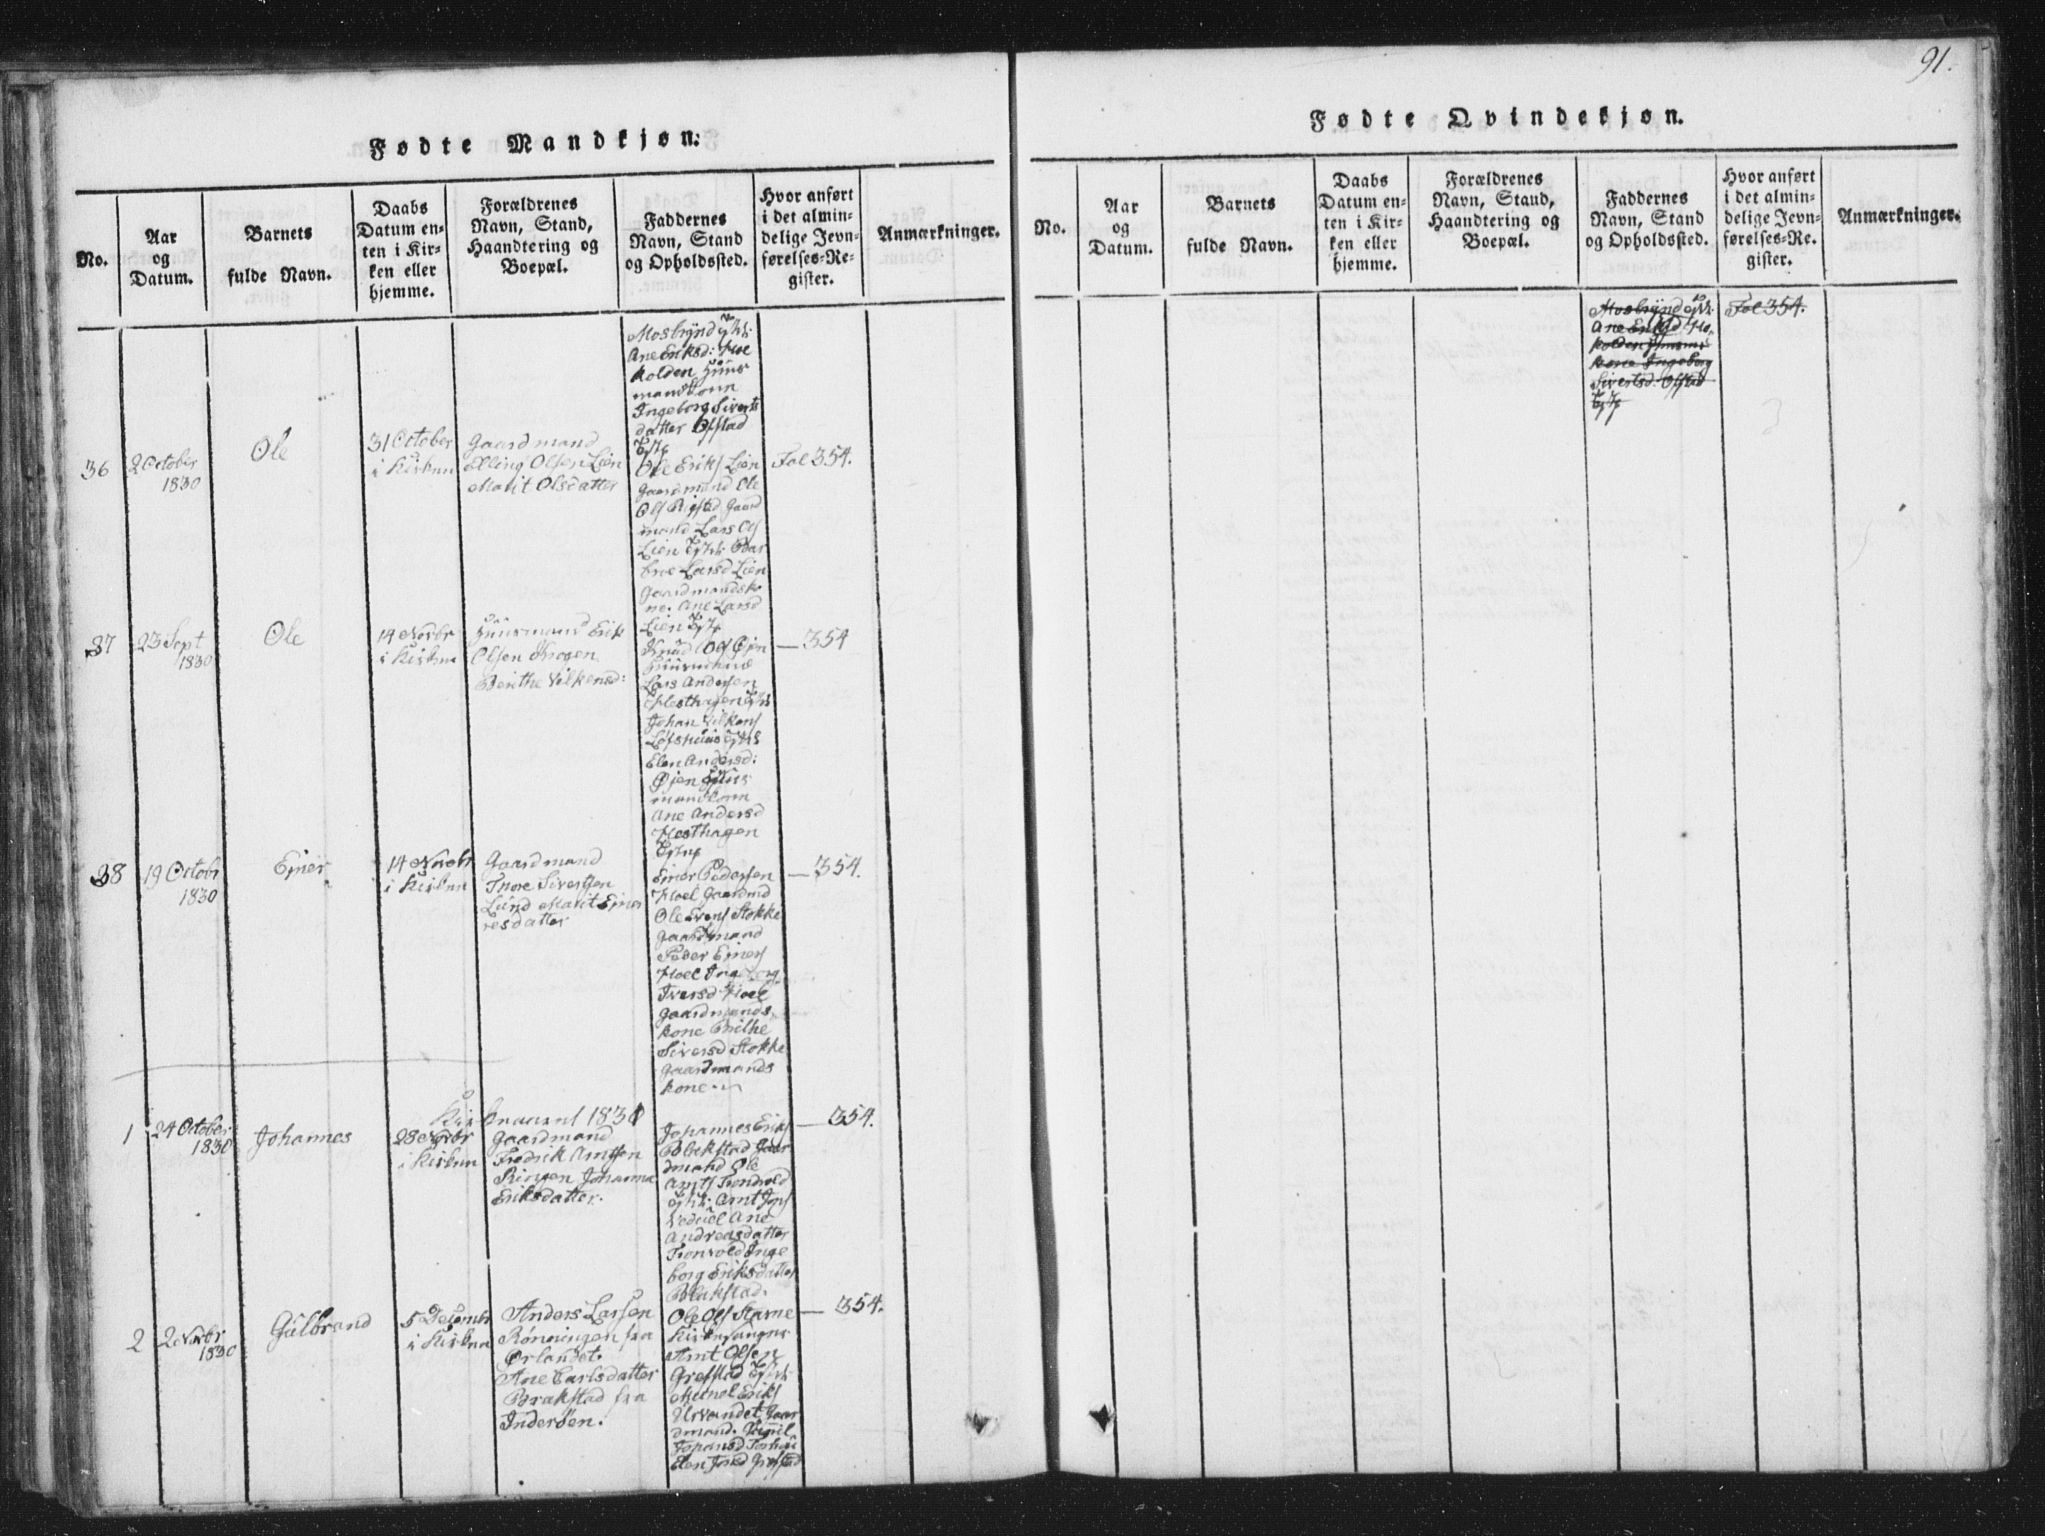 91.
Fødte Mandkjøn.
No.
Aar
og
Datum.
Barnets
fulde Navn.
Daabs
Datum en-
ten i Kir-
ken eller
hjemme.
Forældrenes
Navn, Stand,
Haandtering og
Boepæl.
Faddernes
Navn, Stand
og Opholdssted.
Hvor anført
i det almin-
delige Jevn-
førelses-Re-
gister.
Anmærkninger.
Mosbrynd
Ane Eriksd: Hoe
kolden Huus
mandkonn
Ingeborg Siverts
datter Ofstad
36
2 October
1830
Ole
31 October
i Kirken
Gaardmand
Elling Olsen Lien
Marit Olsdatter
Ole Eriks Lien
Gaardmand Ole
Ols Rigstad Gaard
mand Lars Ols
Lien
broe Larsd Lien
Gaardmandsko
ne. Ane Larsd
Lien
Fol 354.
37
23 Sept
1830
Ole
14 Novbr
i Kirken
Huusmand Erik
Olsen
Berithe Vilkensd:
Knud Ols Øjen
Huusmand
Lars Andersen
Hesthagen
Johan Vilkens
Løfshaus
Elen Andersd:
Øjen
mandkonn
Ane Andersd
Hesthagen
— 354
38
19 Octobr
1830
Ejner
14 Novbr
i Kirken
Gaardmand
Tnore Sivertsen
Lund Marit Ejne
resdatter
Einer Pedersen
Hoel Gaardmd
Ole Evens Stokke
Gaardmand
Peder Ejners
Hoel Ingeborg
Iversd Hoel
Gaardmands
kone Brithe
Siversd Stokke
Gaardmands
kone
— 354.
1
24 October
1830
Johannes
28 Novbr
i Kirken
Gaardmand
Fredrik Arntsen
Ringen Johanna
Eriksdatter.
Johannes Eriks
Blekstad Gaar
dmand Ole
Arnts Tronvold
Arnt Jons
Ane
Andreasdatter
Tronvold Inge
borg Eriksdatter
Blekstad.
— 354.
2
2 Novbr
1830
Gulbrand
5 Decembr
i Kirken
Anders Larsen
Rønningen fra
Ørlandet.
Ane Carlsdatter
Brakstad fra
Inderøen.
Ole Ols Starne
Kirkesanger
Arnt Olsen
Grefstad
Eriks
Urvandet Gaar
dmand.
Elen
— 354.
Fødte Qvindekjøn.
No.
Aar
og
Datum.
Barnets
fulde Navn.
Daabs
Datum en-
ten i Kir-
ken eller
hjemme.
Forældrenes
Navn, Stand,
Haandtering og
Boepæl.
Faddernes
Navn, Stand
og Opholdssted.
Hvor anført
i det almin-
delige Jevn-
førelses-Re-
gister.
Anmærkninger.
Mosbrynd
Ane Eriksd Ho
kolden
kone Ingeborg
Sivertsd. Ofstad
Fol 354.